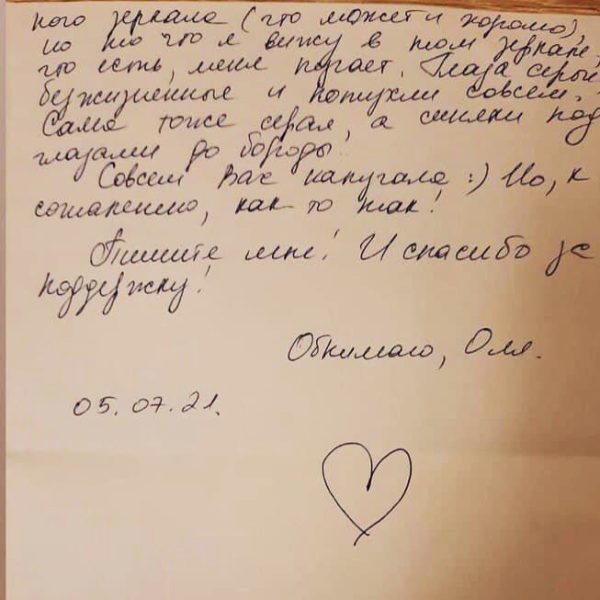 ного зеркала (что может и хорошо),
но то что я вижу в том зеркале,
что есть, меня пугает. Глаза серые
безжизненные и потухли совсем.
Сама тоже серая, а синяки под
глазами до бороды!
Совсем Вас напугала :) Но, к
сожалению, как-то так!
Пишите мне! И спасибо за
поддержку!
Обнимаю, Оля.
05.07.21.